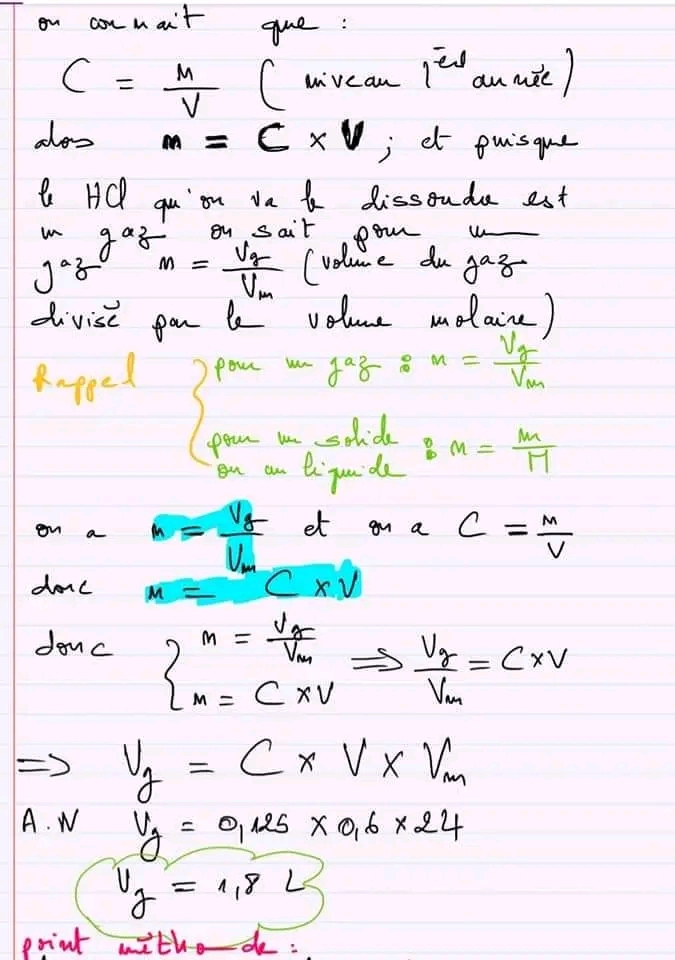 on connait que :
C = n/V ( niveau 1ère année)
alors n = C x V ; et puisque
le HCl qu'on va le dissoudre est
un gaz on sait pour un
gaz n = Vg/Vm (volume du gaz
divisé par le volume molaire)
Rappel { pour un gaz : n = Vg/Vm
pour un solide ou un liquide : n = m/M
on a n = Vg/Vm et on a C = n/V
donc n = C x V
donc { n = Vg/Vm
n = C x V ⟹ Vg/Vm = C x V
=> Vg = C x V x Vm
A.N Vg = 0,125 x 0,6 x 24
Vg = 1,8 L
point méthode :